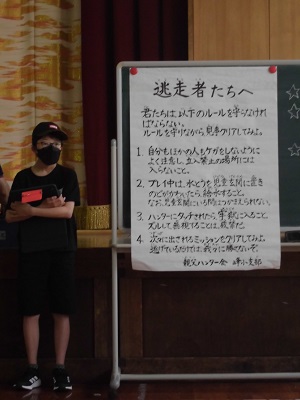 逃走者たちへ
君たちは、以下のルールを守らなければならない。
ルールを守りながら、見事クリアしてみよ。
1. 自分もほかの人もケガをしないように
よく注意し、立入禁止の場所には
入らないこと。
2. プレイ中は、水とうを児玄関に置き
のどがかわいたら給水すること。
なお、児玄関にいる間はつかまえられない。
3. ハンターにタッチされたら、牢獄に入ること。
ズルして無視することは、厳禁だ。
4. 次々に出されるミッションをクリアしてみよ。
逃げているだけでは、我々に勝てないぞ。
親父ハンター会